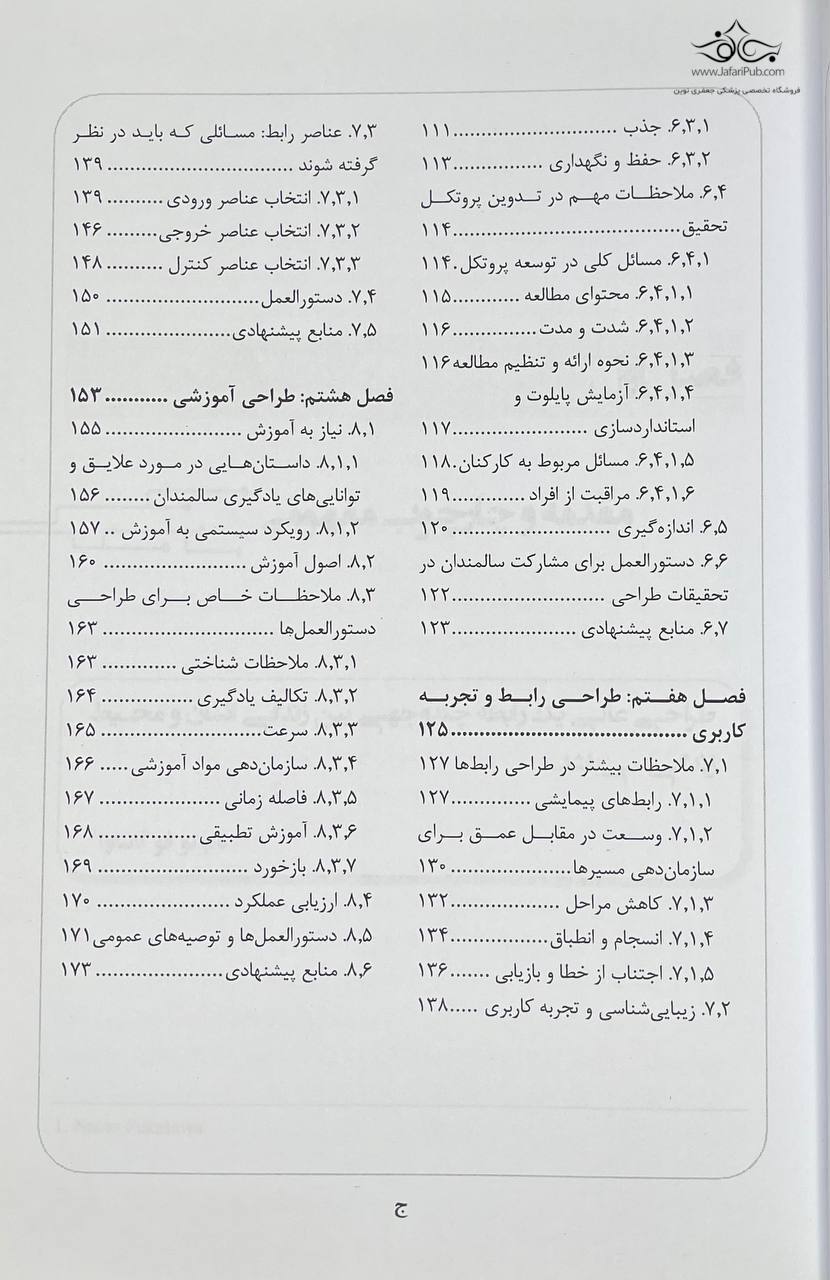 www.JafariPub.com
فروشگاه تخصصی پزشکی جعفری نوین
۶,۳,۱. جذب ............................. ۱۱۱
۶,۳,۲. حفظ و نگهداری ................ ۱۱۳
۶,۴. ملاحظات مهم در تدوین پروتکل
تحقیق ......................................... ۱۱۴
۶,۴,۱. مسائل کلی در توسعه پروتکل. ۱۱۴
۶,۴,۱,۱. محتوای مطالعه ............ ۱۱۵
۶,۴,۱,۲. شدت و مدت ............... ۱۱۶
۶,۴,۱,۳. نحوه ارائه و تنظیم مطالعه ۱۱۶
۶,۴,۱,۴. آزمایش پایلوت و
استانداردسازی ........................ ۱۱۷
۶,۴,۱,۵. مسائل مربوط به کارکنان. ۱۱۸
۶,۴,۱,۶. مراقبت از افراد ............. ۱۱۹
۶,۵. اندازه‌گیری ............................. ۱۲۰
۶,۶. دستورالعمل برای مشارکت سالمندان در
تحقیقات طراحی ............................ ۱۲۲
۶,۷. منابع پیشنهادی ....................... ۱۲۳
فصل هفتم: طراحی رابط و تجربه
کاربری ........................................... ۱۲۵
۷,۱. ملاحظات بیشتر در طراحی رابط‌ها ۱۲۷
۷,۱,۱. رابط‌های پیمایشی ............... ۱۲۷
۷,۱,۲. وسعت در مقابل عمق برای
سازمان‌دهی مسیرها ...................... ۱۳۰
۷,۱,۳. کاهش مراحل .................... ۱۳۲
۷,۱,۴. انسجام و انطباق .................. ۱۳۴
۷,۱,۵. اجتناب از خطا و بازیابی ....... ۱۳۶
۷,۲. زیبایی‌شناسی و تجربه کاربری ..... ۱۳۸
۷,۳. عناصر رابط: مسائلی که باید در نظر
گرفته شوند .................................. ۱۳۹
۷,۳,۱. انتخاب عناصر ورودی .......... ۱۳۹
۷,۳,۲. انتخاب عناصر خروجی ......... ۱۴۶
۷,۳,۳. انتخاب عناصر کنترل .......... ۱۴۸
۷,۴. دستورالعمل ............................ ۱۵۰
۷,۵. منابع پیشنهادی ....................... ۱۵۱
فصل هشتم: طراحی آموزشی ........... ۱۵۳
۸,۱. نیاز به آموزش ......................... ۱۵۵
۸,۱,۱. داستان‌هایی در مورد علایق و
توانایی‌های یادگیری سالمندان ........ ۱۵۶
۸,۱,۲. رویکرد سیستمی به آموزش .. ۱۵۷
۸,۲. اصول آموزش .......................... ۱۶۰
۸,۳. ملاحظات خاص برای طراحی
دستورالعمل‌ها ............................... ۱۶۳
۸,۳,۱. ملاحظات شناختی ............. ۱۶۳
۸,۳,۲. تکالیف یادگیری ................ ۱۶۴
۸,۳,۳. سرعت ............................. ۱۶۵
۸,۳,۴. سازمان‌دهی مواد آموزشی ..... ۱۶۶
۸,۳,۵. فاصله زمانی ...................... ۱۶۷
۸,۳,۶. آموزش تطبیقی ................. ۱۶۸
۸,۳,۷. بازخورد ........................... ۱۶۹
۸,۴. ارزیابی عملکرد ........................ ۱۷۰
۸,۵. دستورالعمل‌ها و توصیه‌های عمومی ۱۷۱
۸,۶. منابع پیشنهادی ....................... ۱۷۳
ج